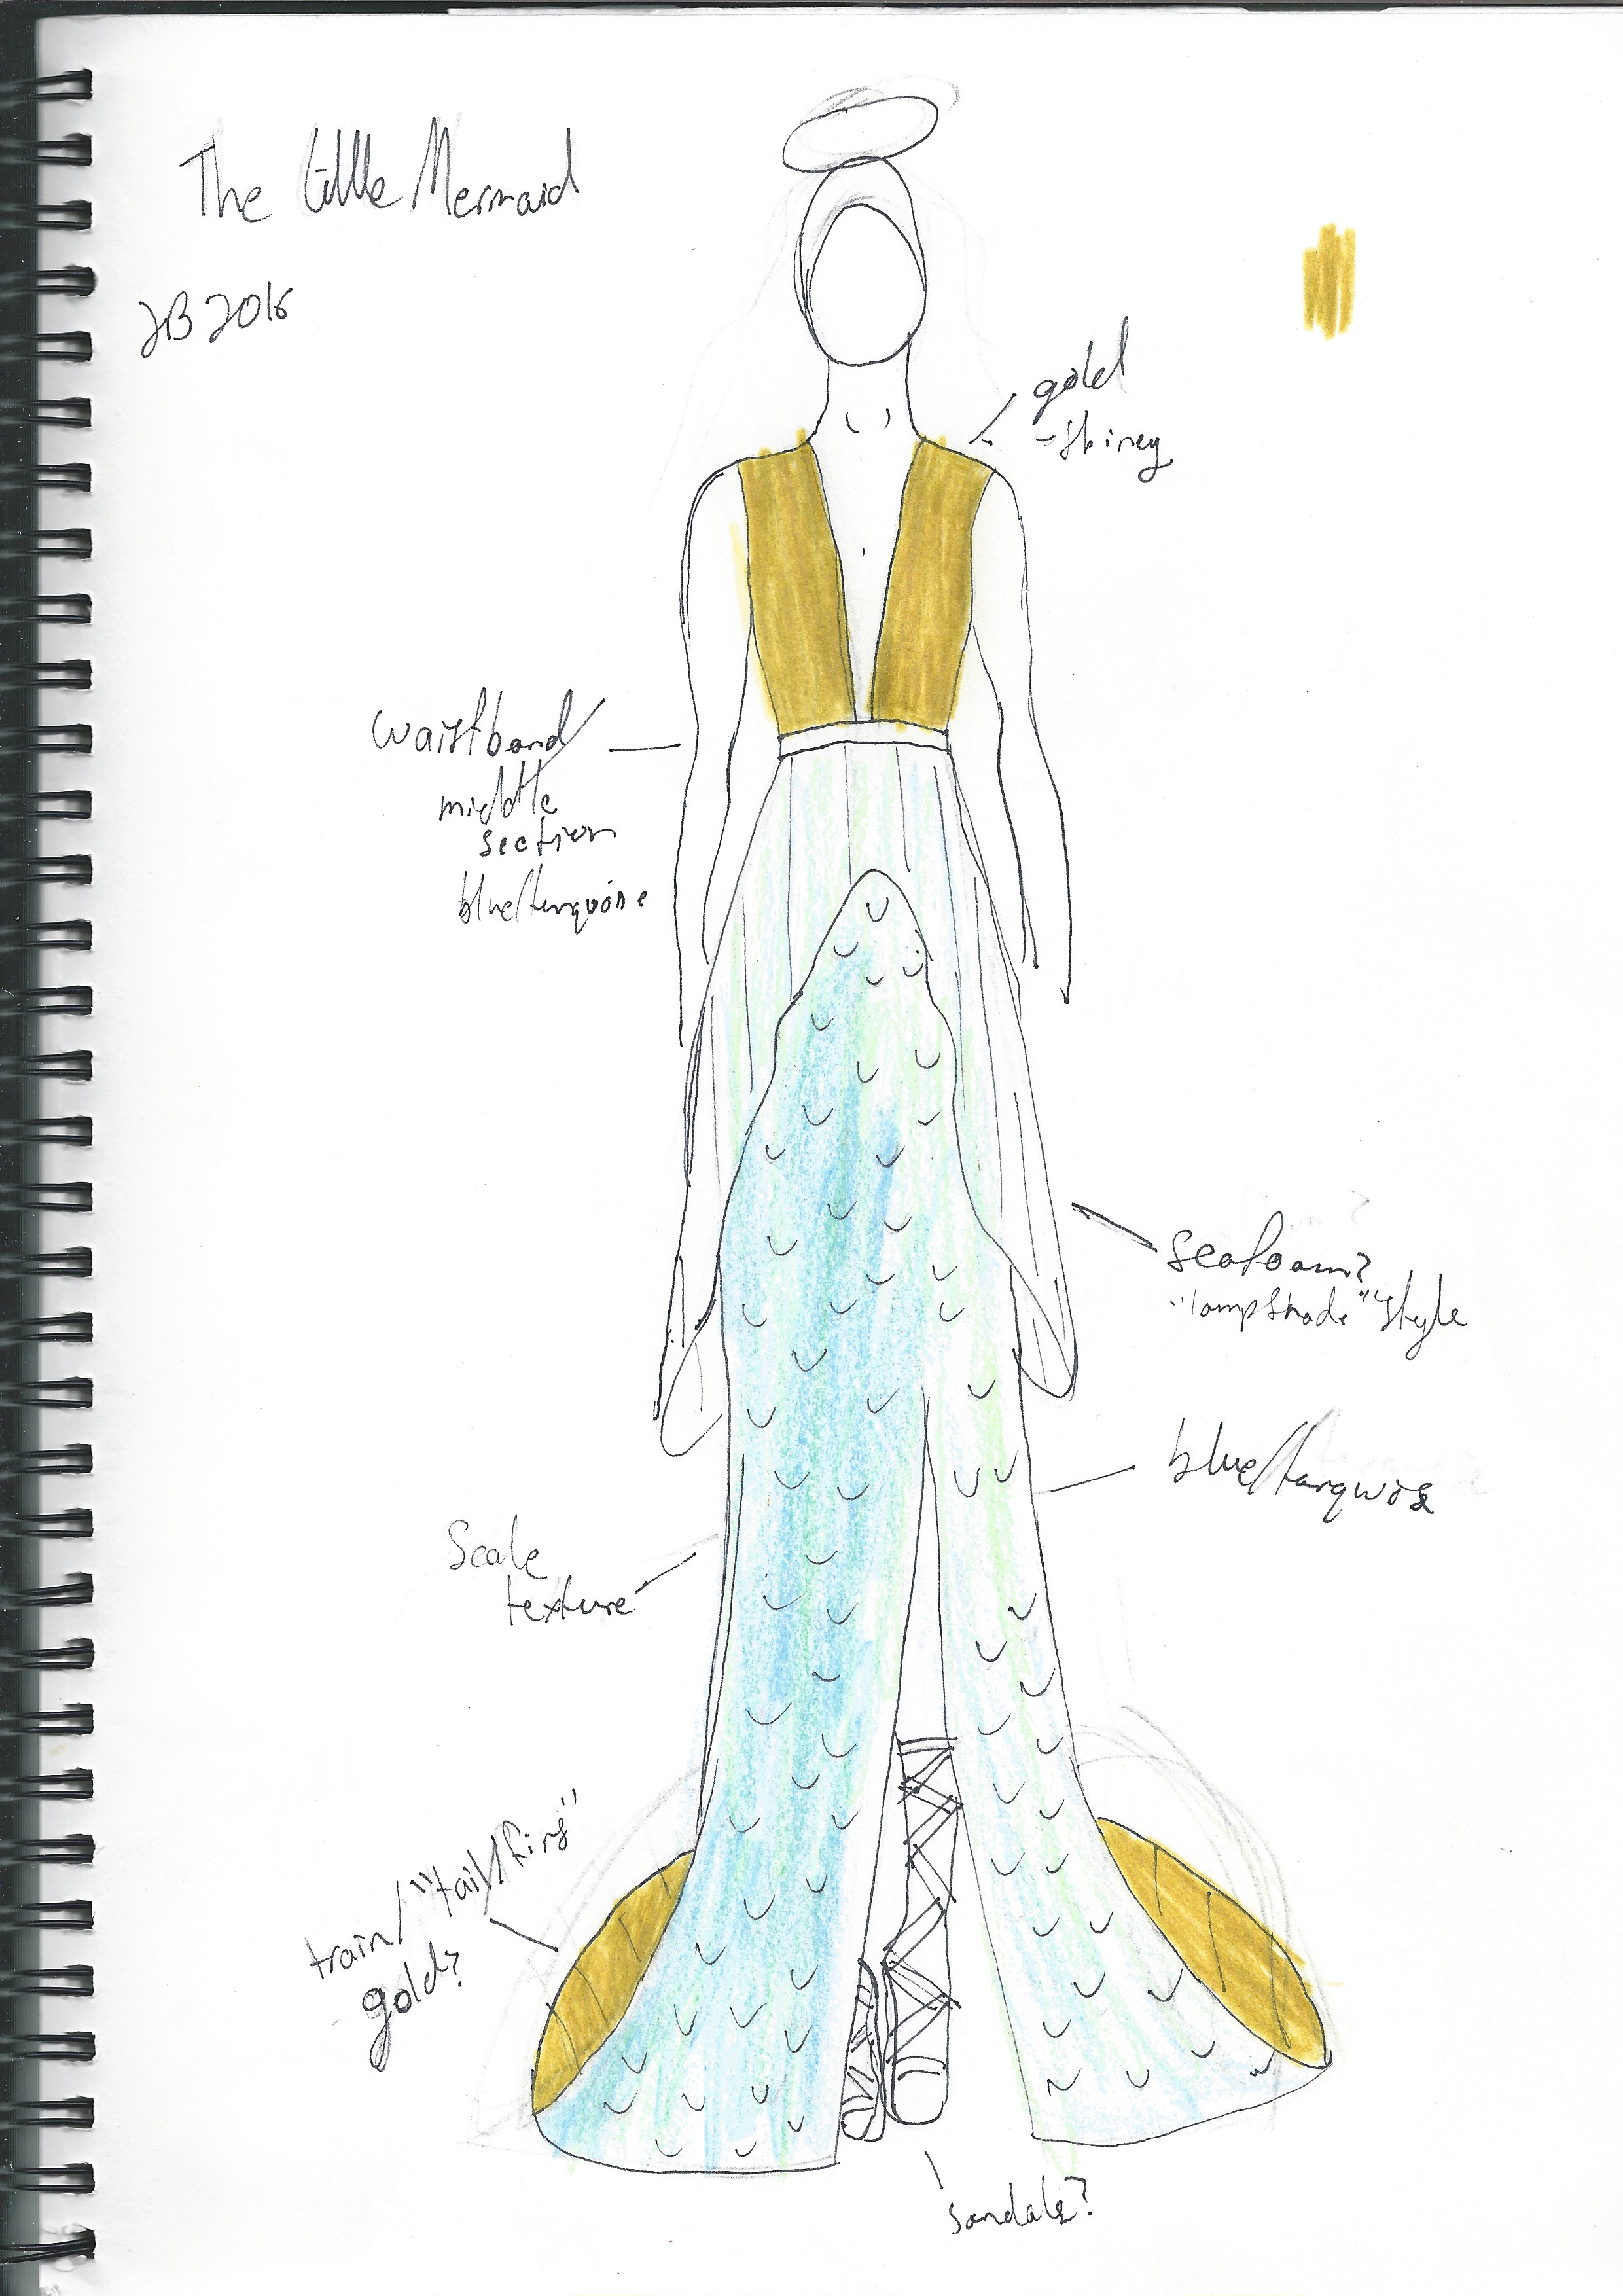 The Little Mermaid
JB 2016
gold
- Shiney
waistband
middle
section
blue/turquoise
seafoam?
"lampshade" style
blue/turqwoise
Scale
texture
train/"tail/fins"
- gold?
sandals?